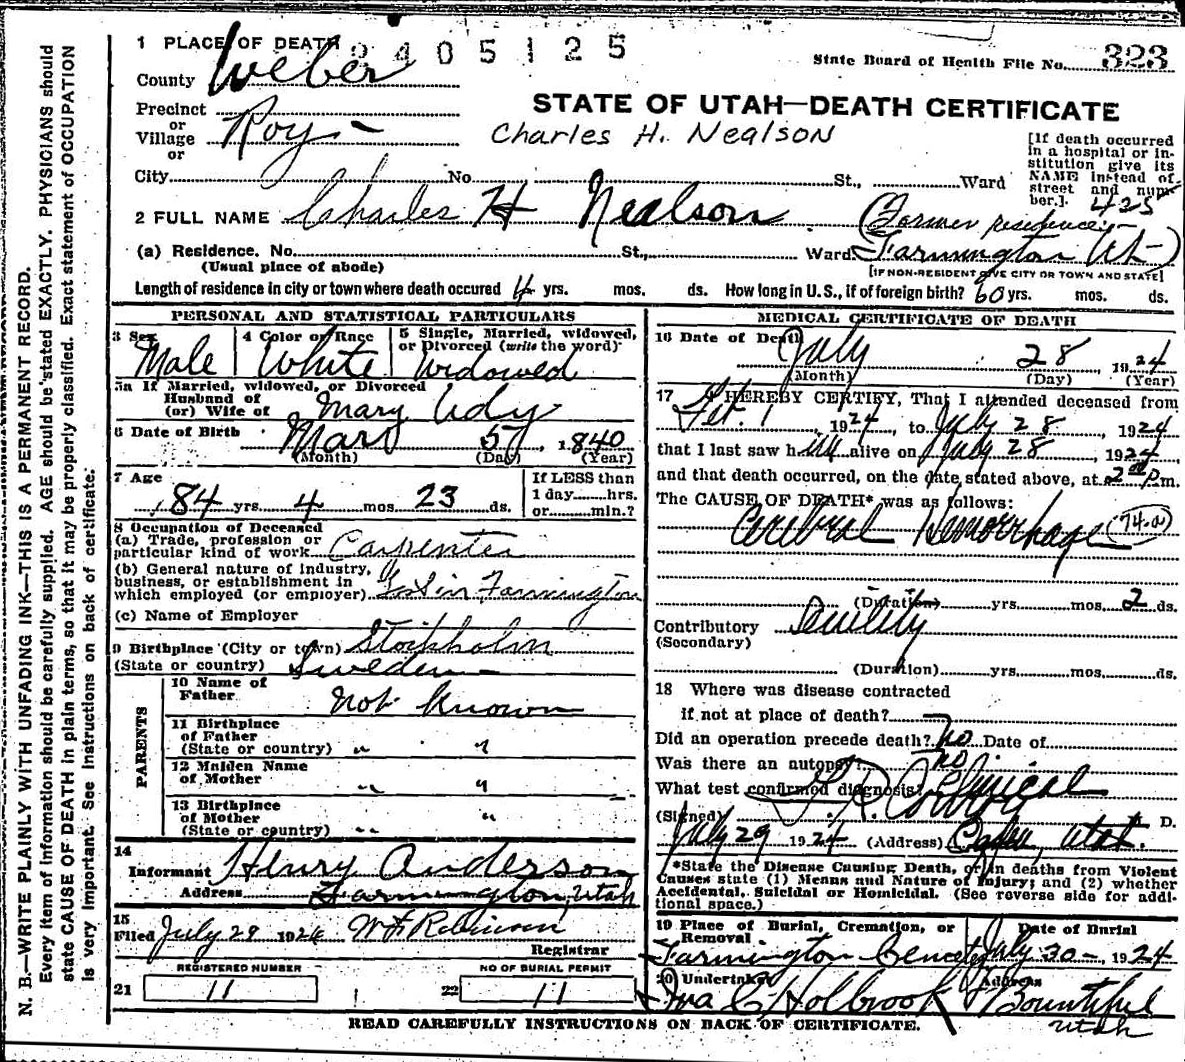 N. B.—WRITE PLAINLY WITH UNFADING INK—THIS IS A PERMANENT RECORD.
Every item of information should be carefully supplied. AGE should be stated EXACTLY. PHYSICIANS should
state CAUSE OF DEATH in plain terms, so that it may be properly classified. Exact statement of OCCUPATION
is very important. See instructions on back of certificate.
1 PLACE OF DEATH 2405125
State Board of Health File No. 323
County Weber
STATE OF UTAH—DEATH CERTIFICATE
Precinct
or
Village Roy
or
Charles H. Nealson
[If death occurred
in a hospital or in-
stitution give its
NAME instead of
street and num-
ber.]. 425
City No. St., Ward
2 FULL NAME Charles H Nealson
(Former residence:
Farmington Ut)
(a) Residence. No. St., Ward.
(Usual place of abode)
[IF NON-RESIDENT GIVE CITY OR TOWN AND STATE]
Length of residence in city or town where death occured 4 yrs. mos. ds. How long in U.S., if of foreign birth? 60 yrs. mos. ds.
PERSONAL AND STATISTICAL PARTICULARS
3 Sex Male
4 Color or Race White
5 Single, Married, widowed,
or Divorced (write the word)
Widowed
5a If Married, widowed, or Divorced
Husband of
(or) Wife of Mary Udy
6 Date of Birth Mar 5, 1840
(Month) (Day) (Year)
7 Age
84 yrs. 4 mos. 23 ds.
If LESS than
1 day hrs.
or min.?
8 Occupation of Deceased
(a) Trade, profession or
particular kind of work Carpenter
(b) General nature of industry,
business, or establishment in
which employed (or employer) Farmington
(c) Name of Employer
9 Birthplace (City or town) Stockholm
(State or country) Sweden
PARENTS
10 Name of
Father Not Known
11 Birthplace
of Father
(State or country) " "
12 Maiden Name
of Mother " "
13 Birthplace
of Mother
(State or country) " "
14
Informant Henry Anderson
Address Farmington, Utah
15
Filed July 29 1924 W F Robinson
Registrar
REGISTERED NUMBER
21 11
NO OF BURIAL PERMIT
22 11
MEDICAL CERTIFICATE OF DEATH
16 Date of Death July 28 1924
(Month) (Day) (Year)
17 I HEREBY CERTIFY, That I attended deceased from
Feb. 1 1924, to July 28, 1924
that I last saw him alive on July 28, 1924,
and that death occurred, on the date stated above, at 2 P.m.
The CAUSE OF DEATH* was as follows:
Cerebral Hemorrhage (74-a)
(Duration) yrs. mos. 2 ds.
Contributory Senility
(Secondary)
(Duration) yrs. mos. ds.
18 Where was disease contracted
if not at place of death?
Did an operation precede death? No Date of
Was there an autopsy? No
What test confirmed diagnosis? Clinical
(Signed) D.
July 29 1924 (Address) Utah.
*State the Disease Causing Death, or in deaths from Violent
Causes state (1) Means and Nature of Injury; and (2) whether
Accidental, Suicidal or Homicidal. (See reverse side for addi-
tional space.)
19 Place of Burial, Cremation, or
Removal
Date of Burial
Farmington Cemetery July 30, 1924
20 Undertaker
Address
Iva C Holbrook Bountiful
Utah
READ CAREFULLY INSTRUCTIONS ON BACK OF CERTIFICATE.